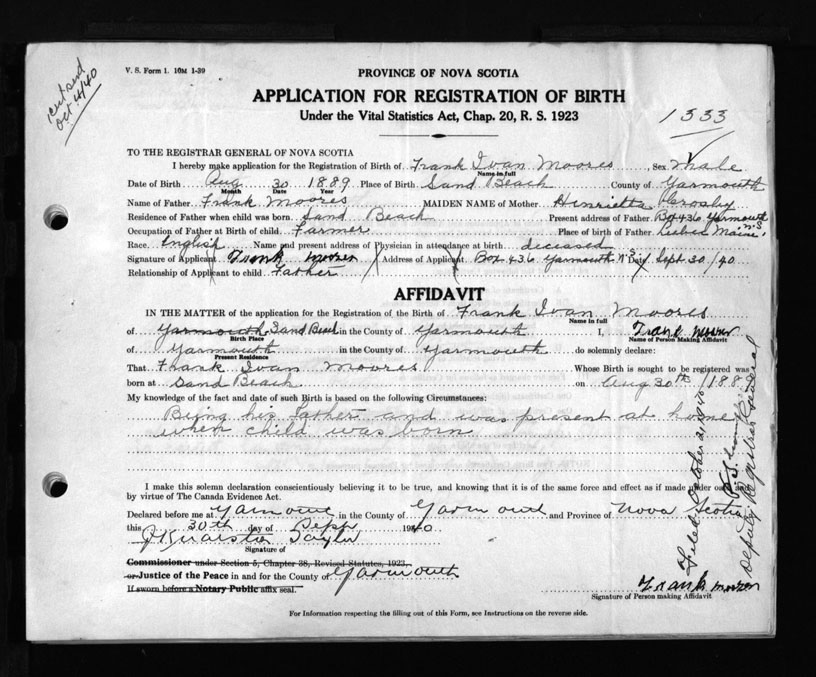 Oct 4/40
V. S. Form 1. 10M 1-39
PROVINCE OF NOVA SCOTIA
APPLICATION FOR REGISTRATION OF BIRTH
Under the Vital Statistics Act, Chap. 20, R. S. 1923
1333
TO THE REGISTRAR GENERAL OF NOVA SCOTIA
I hereby make application for the Registration of Birth of Frank Ivan Moores, Sex Male
Name in full
Date of Birth Aug 30 1889 Place of Birth Sand Beach County of Yarmouth
Month Date Year
Name of Father Frank Moores MAIDEN NAME of Mother Henrietta Crosby
Residence of Father when child was born Sand Beach Present address of Father Box 436 Yarmouth N.S.
Occupation of Father at Birth of child Farmer Place of birth of Father Maine
Race English Name and present address of Physician in attendance at birth deceased
Signature of Applicant Frank Address of Applicant Box 436 Yarmouth N S Date Sept 30/40
Relationship of Applicant to child Father
AFFIDAVIT
IN THE MATTER of the application for the Registration of the Birth of Frank Ivan Moores
Name in full
of Yarmouth Sand Beach in the County of Yarmouth I,
Birth Place Name of Person Making Affidavit
of Yarmouth in the County of Yarmouth do solemnly declare:
Present Residence
That Frank Ivan Moores Whose Birth is sought to be registered was
born at Sand Beach on Aug 30th
My knowledge of the fact and date of such Birth is based on the following Circumstances:
Being his father and was present at home
when child was born
I make this solemn declaration conscientiously believing it to be true, and knowing that it is of the same force and effect as if made under oath and
by virtue of The Canada Evidence Act.
Declared before me at Yarmouth in the County of Yarmouth and Province of Nova Scotia
this 30th day of Sept 1940
Taylor
Signature of
Commissioner under Section 5, Chapter 38, Revised Statutes, 1923
or Justice of the Peace in and for the County of Yarmouth
If sworn before a Notary Public affix seal.
Frank
Signature of Person making Affidavit
Filed October 2, 1940
Deputy Registrar General
For Information respecting the filling out of this Form, see Instructions on the reverse side.